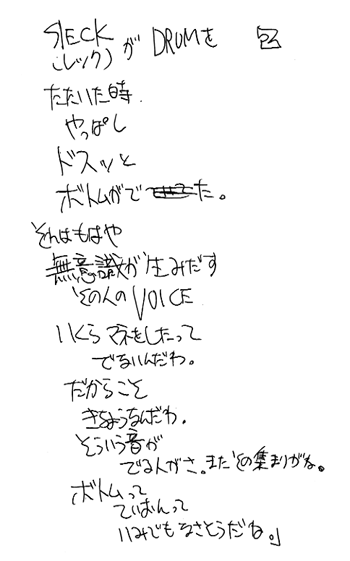 SLECK が DRUMを
(レック)
たたいた時.
やっぱし
ドスッと
ボトムがでた。
それはもはや
無意識が生みだす
その人のVOICE
いくらマネをしたって
でないんだわ。
だからこそ
きちょうなんだわ.
そういう音が
でる人がさ。またその集まりがね。
ボトムって
ていばんって
いみでもなさそうだね。」